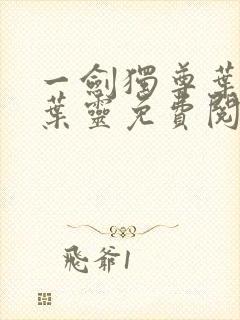 一劍獨尊葉
葉靈免費閱
飛爺1